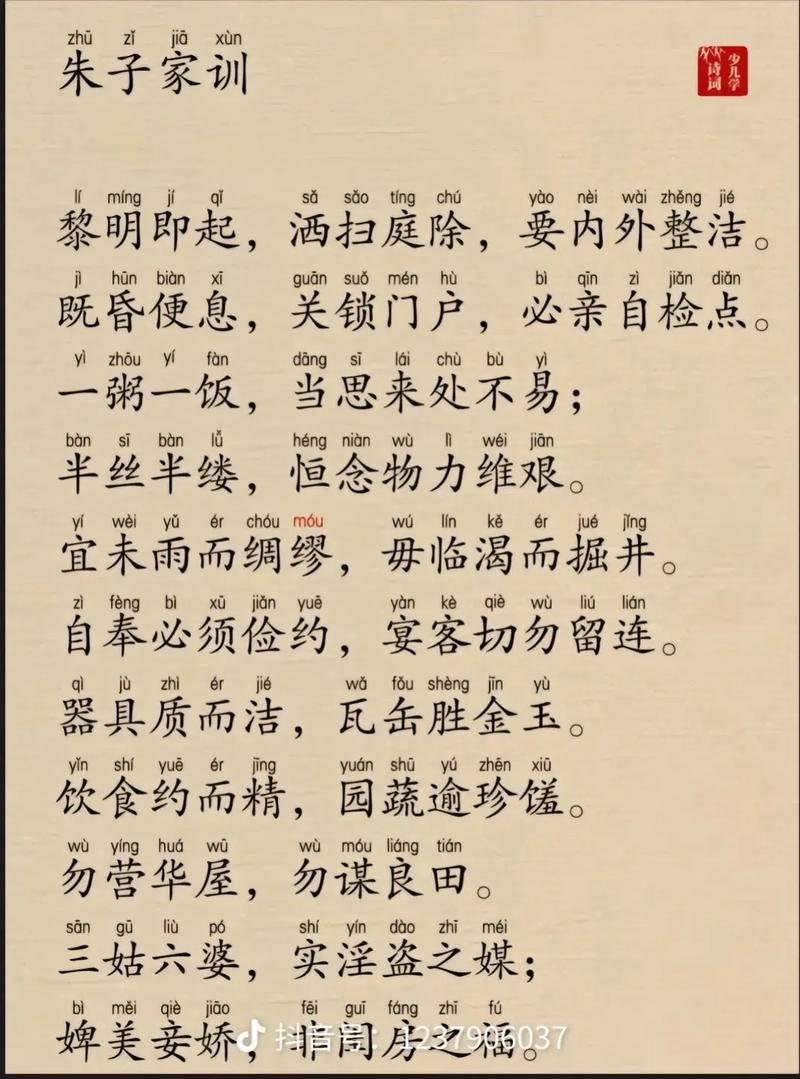 zhū zǐ jiā xùn
朱子家训
少儿学
诗词
lí míng jí qǐ sǎ sǎo tíng chú yào nèi wài zhěng jié
黎明即起，洒扫庭除，要内外整洁。
jì hūn biàn xī guān suǒ mén hù bì qīn zì jiǎn diǎn
既昏便息，关锁门户，必亲自检点。
yì zhōu yí fàn dāng sī lái chù bù yì
一粥一饭，当思来处不易；
bàn sī bàn lǚ héng niàn wù lì wéi jiān
半丝半缕，恒念物力维艰。
yí wèi yǔ ér chóu móu wú lín kě ér jué jǐng
宜未雨而绸缪，毋临渴而掘井。
zì fèng bì xū jiǎn yuē yàn kè qiè wù liú lián
自奉必须俭约，宴客切勿留连。
qì jù zhì ér jié wǎ fǒu shèng jīn yù
器具质而洁，瓦缶胜金玉。
yǐn shí yuē ér jīng yuán shū yú zhēn xiū
饮食约而精，园蔬逾珍馐。
wù yíng huá wū wù móu liáng tián
勿营华屋，勿谋良田。
sān gū liù pó shí yín dào zhī méi
三姑六婆，实淫盗之媒；
bì měi qiè jiāo fēi guī fáng zhī fú
婢美妾娇，非闺房之福。
抖音号：1237906037